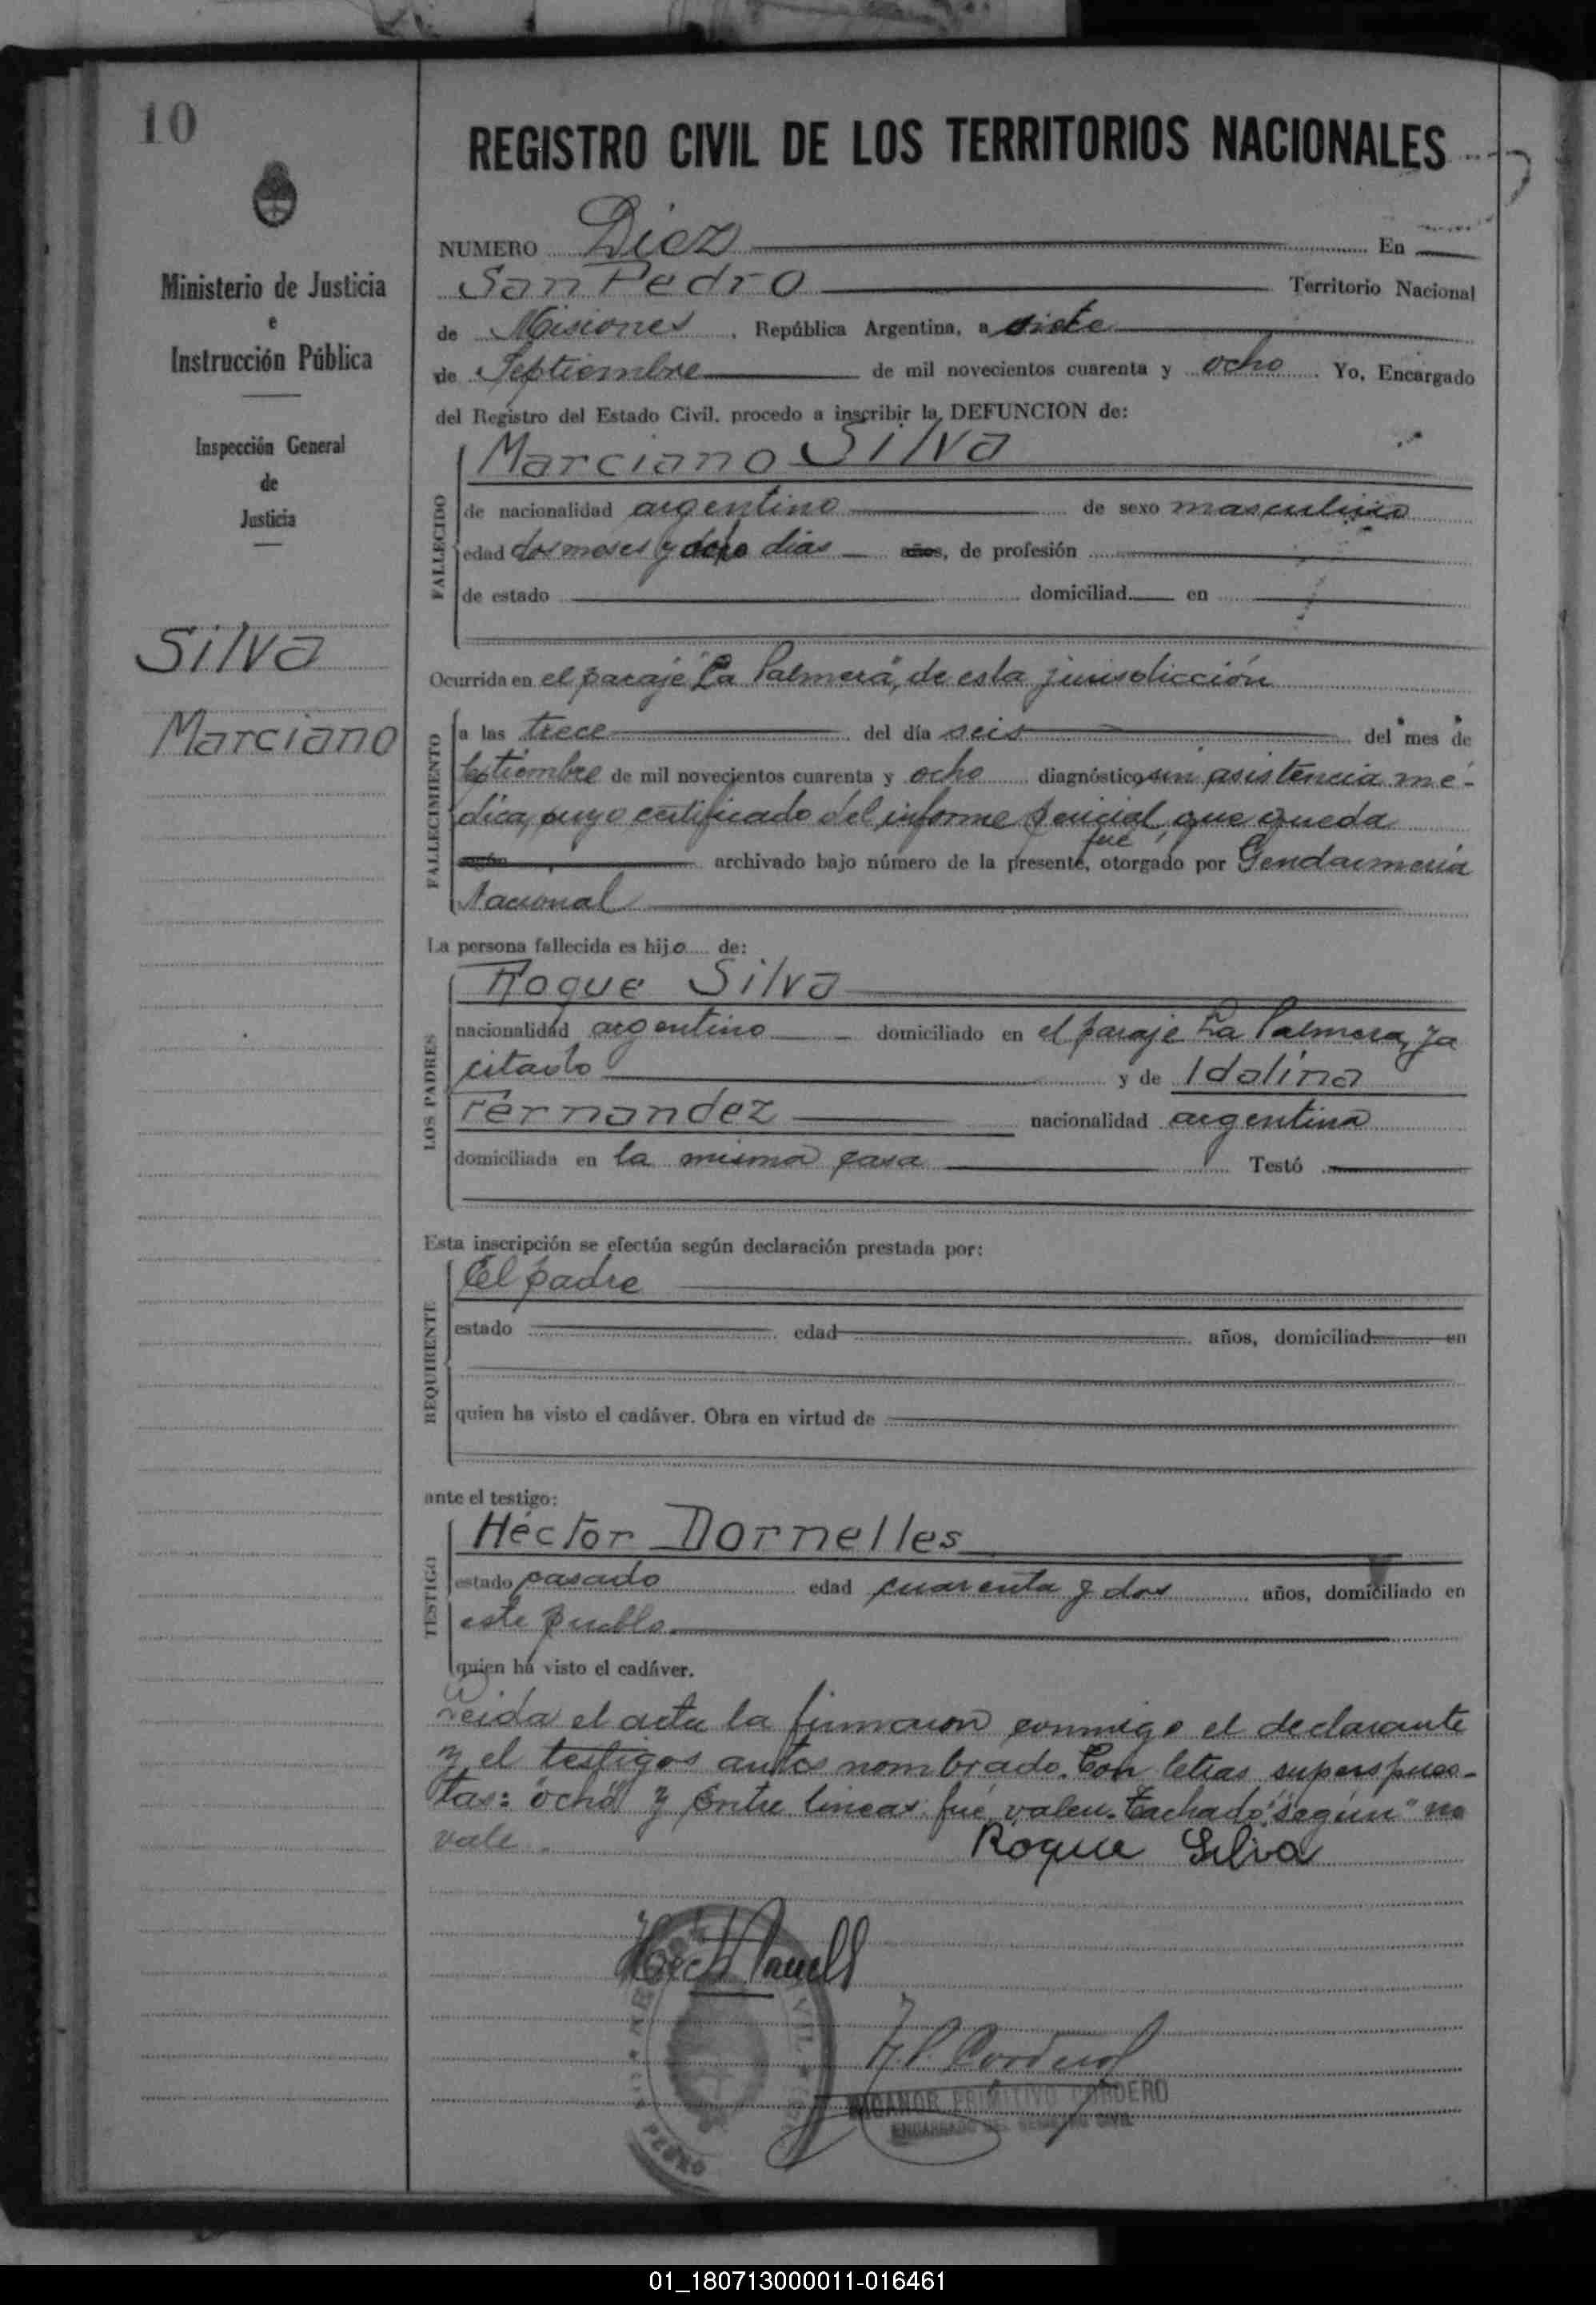 10
REGISTRO CIVIL DE LOS TERRITORIOS NACIONALES
Ministerio de Justicia
e
Instrucción Pública
Inspección General
de
Justicia
Silva
Marciano
NUMERO Diez En
San Pedro Territorio Nacional
de Misiones, República Argentina, a siete
de Septiembre de mil novecientos cuarenta y ocho. Yo, Encargado
del Registro del Estado Civil, procedo a inscribir la DEFUNCION de:
Marciano Silva
FALLECIDO
de nacionalidad argentino de sexo masculino
edad dos meses y ocho dias años, de profesión
de estado domiciliad en
Ocurrida en el paraje "La Palmera", de esta jurisdicción
FALLECIMIENTO
a las trece del día seis del mes de
Septiembre de mil novecientos cuarenta y ocho diagnóstico sin asistencia mé-
dica, cuyo certificado del informe pericial, que queda
fué
según archivado bajo número de la presente, otorgado por Gendarmería
Nacional
La persona fallecida es hijo de:
LOS PADRES
Roque Silva
nacionalidad argentino domiciliado en el paraje La Palmera, ya
citado y de Idalina
Fernandez nacionalidad argentina
domiciliada en la misma casa Testó
Esta inscripción se efectúa según declaración prestada por:
REQUIRENTE
El padre
estado edad años, domiciliad en
quien ha visto el cadáver. Obra en virtud de
ante el testigo:
TESTIGO
Héctor Dornelles
estado casado edad cuarenta y dos años, domiciliado en
este pueblo
quien ha visto el cadáver.
Leida el acta la firmaron conmigo el declarante
y el testigos antes nombrado. Con letras superspues-
tas: "ocho" y Entre lineas: fué, valen. Tachado "según" no
vale.
Roque Silva
NICANOR PRIMITIVO CORDERO
ENCARGADO DEL REGISTRO CIVIL
SAN PEDRO
01_180713000011-016461